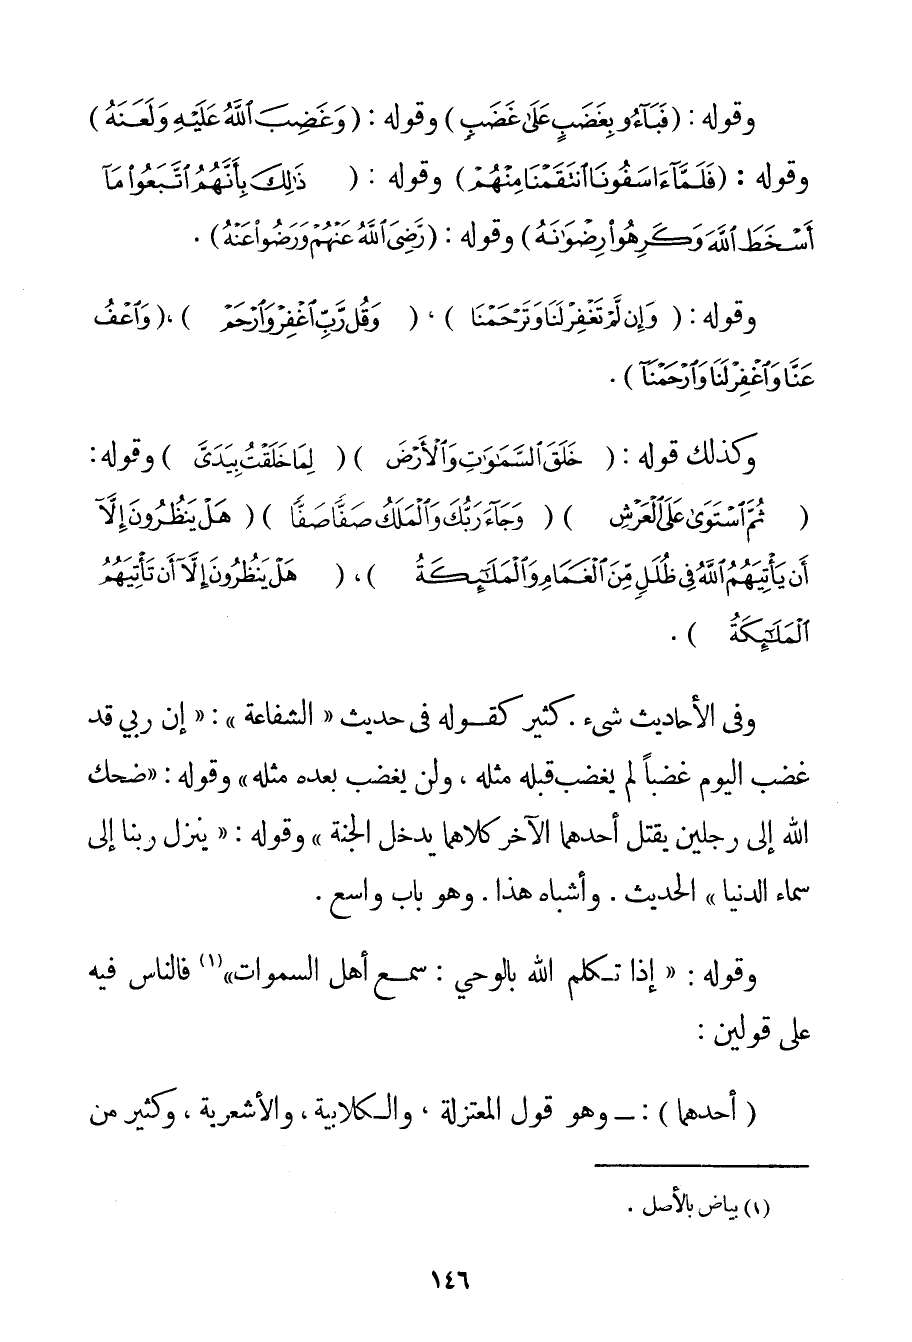 وقوله : ( فَبَآءُو بِغَضَبٍ عَلَىٰ غَضَبٍ ) وقوله : ( وَغَضِبَ ٱللَّهُ عَلَيْهِ وَلَعَنَهُ )
وقوله : ( فَلَمَّآ ءَاسَفُونَا ٱنتَقَمْنَا مِنْهُمْ ) وقوله : ( ذَٰلِكَ بِأَنَّهُمُ ٱتَّبَعُوا۟ مَآ
أَسْخَطَ ٱللَّهَ وَكَرِهُوا۟ رِضْوَٰنَهُۥ ) وقوله : ( رَّضِىَ ٱللَّهُ عَنْهُمْ وَرَضُوا۟ عَنْهُ ) .
وقوله : ( وَإِن لَّمْ تَغْفِرْ لَنَا وَتَرْحَمْنَا ) ، ( وَقُل رَّبِّ ٱغْفِرْ وَٱرْحَمْ ) ، ( وَٱعْفُ
عَنَّا وَٱغْفِرْ لَنَا وَٱرْحَمْنَآ ) .
وكذلك قوله : ( خَلَقَ ٱلسَّمَٰوَٰتِ وَٱلْأَرْضَ ) ( لِمَا خَلَقْتُ بِيَدَىَّ ) وقوله :
( ثُمَّ ٱسْتَوَىٰ عَلَى ٱلْعَرْشِ ) ( وَجَآءَ رَبُّكَ وَٱلْمَلَكُ صَفًّا صَفًّا ) ( هَلْ يَنظُرُونَ إِلَّآ
أَن يَأْتِيَهُمُ ٱللَّهُ فِى ظُلَلٍ مِّنَ ٱلْغَمَامِ وَٱلْمَلَٰٓئِكَةُ ) ، ( هَلْ يَنظُرُونَ إِلَّآ أَن تَأْتِيَهُمُ
ٱلْمَلَٰٓئِكَةُ ) .
وفى الأحاديث شىء . كثير كقوله فى حديث « الشفاعة » : « إن ربي قد
غضب اليوم غضباً لم يغضب قبله مثله ، ولن يغضب بعده مثله » وقوله : « ضحك
الله إلى رجلين يقتل أحدهما الآخر كلاهما يدخل الجنة » وقوله : « ينزل ربنا إلى
سماء الدنيا » الحديث . وأشباه هذا . وهو باب واسع .
وقوله : « إذا تكلم الله بالوحي : سمع أهل السموات »(١) فالناس فيه
على قولين :
( أحدهما ) : ـ وهو قول المعتزلة ، والكلابية ، والأشعرية ، وكثير من
(١) بياض بالأصل .
١٤٦